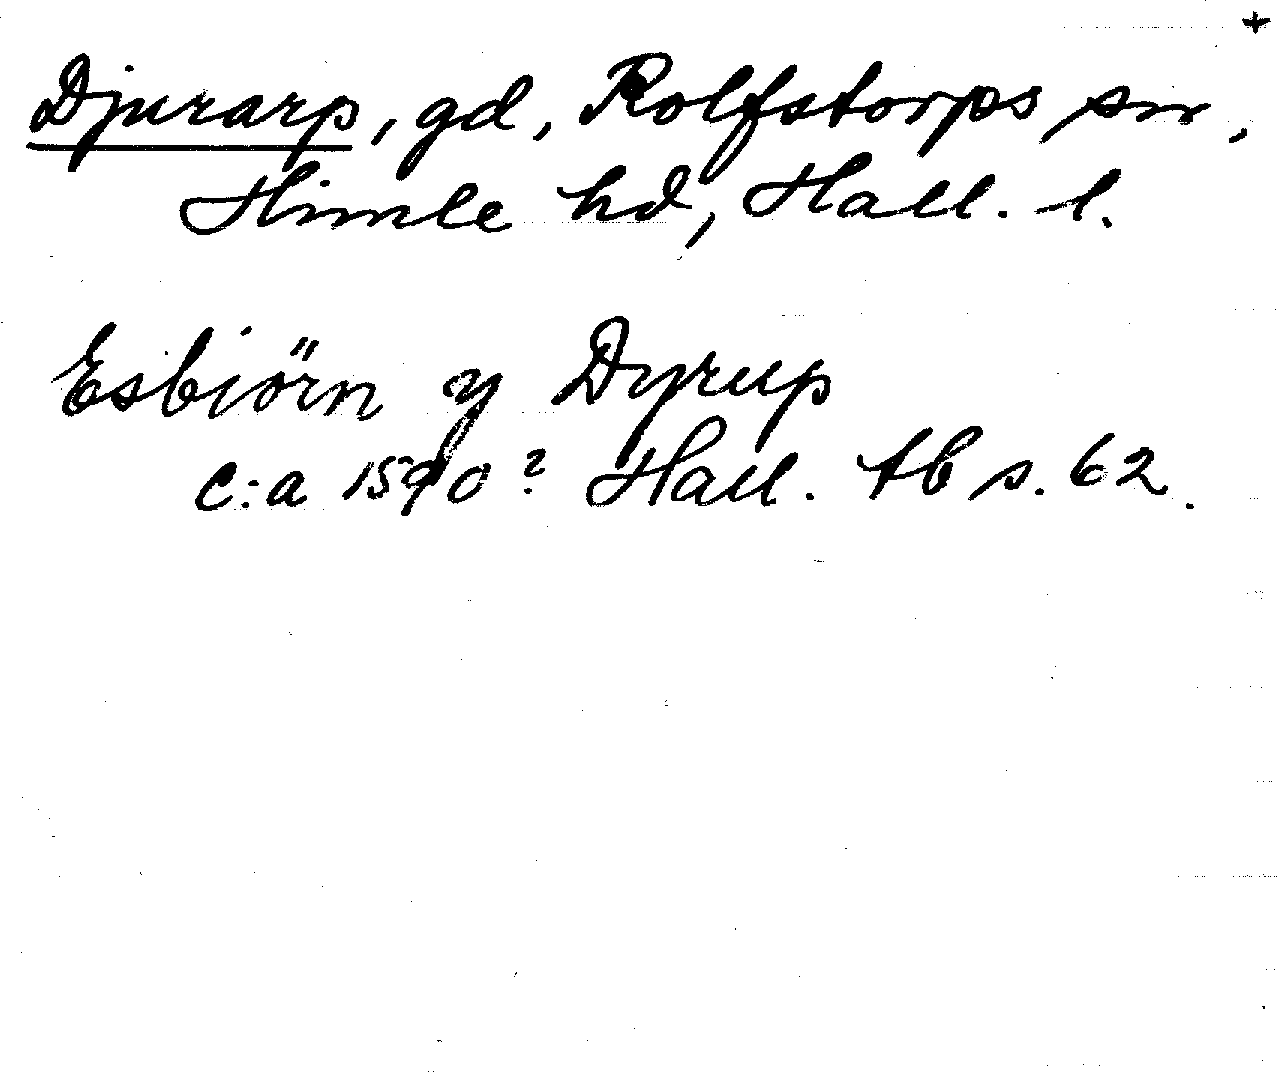 +
Djurarp, gd, Rolfstorps sn,
Himle hd, Hall. l.
Esbiörn y Dyrup
c:a 1590? Hall. tb s. 62.